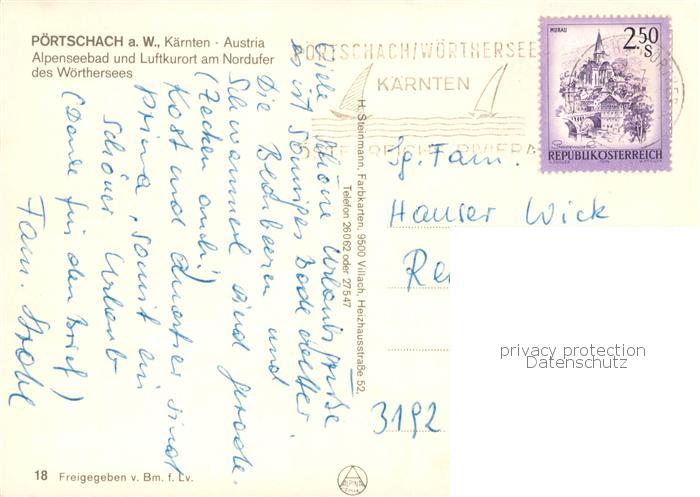 PÖRTSCHACH a. W., Kärnten - Austria
Alpenseebad und Luftkurort am Nordufer
des Wörthersees
PÖRTSCHACH/WÖRTHERSEE
KÄRNTEN
ÖSTERREICHS RIVIERA
MURAU
2.50
S
REPUBLIK ÖSTERREICH
Viele schöne Urlaubsgrüße
es ist sonniges Badewetter
Die Beerbeeren und
Schwammerl sind gerade.
(Zecken auch!)
Kost und Quartier sind
prima, somit ein
schöner Urlaub
(Danke für den Brief)
Fam. Strohl
H. Steinmann, Farbkarten, 9500 Villach, Heizhausstraße 52,
Telefon 26062 oder 27547
Fam.
Hauser Wick
Re
3192
privacy protection
Datenschutz
18 Freigegeben v. Bm. f. Lv.
ALPINA